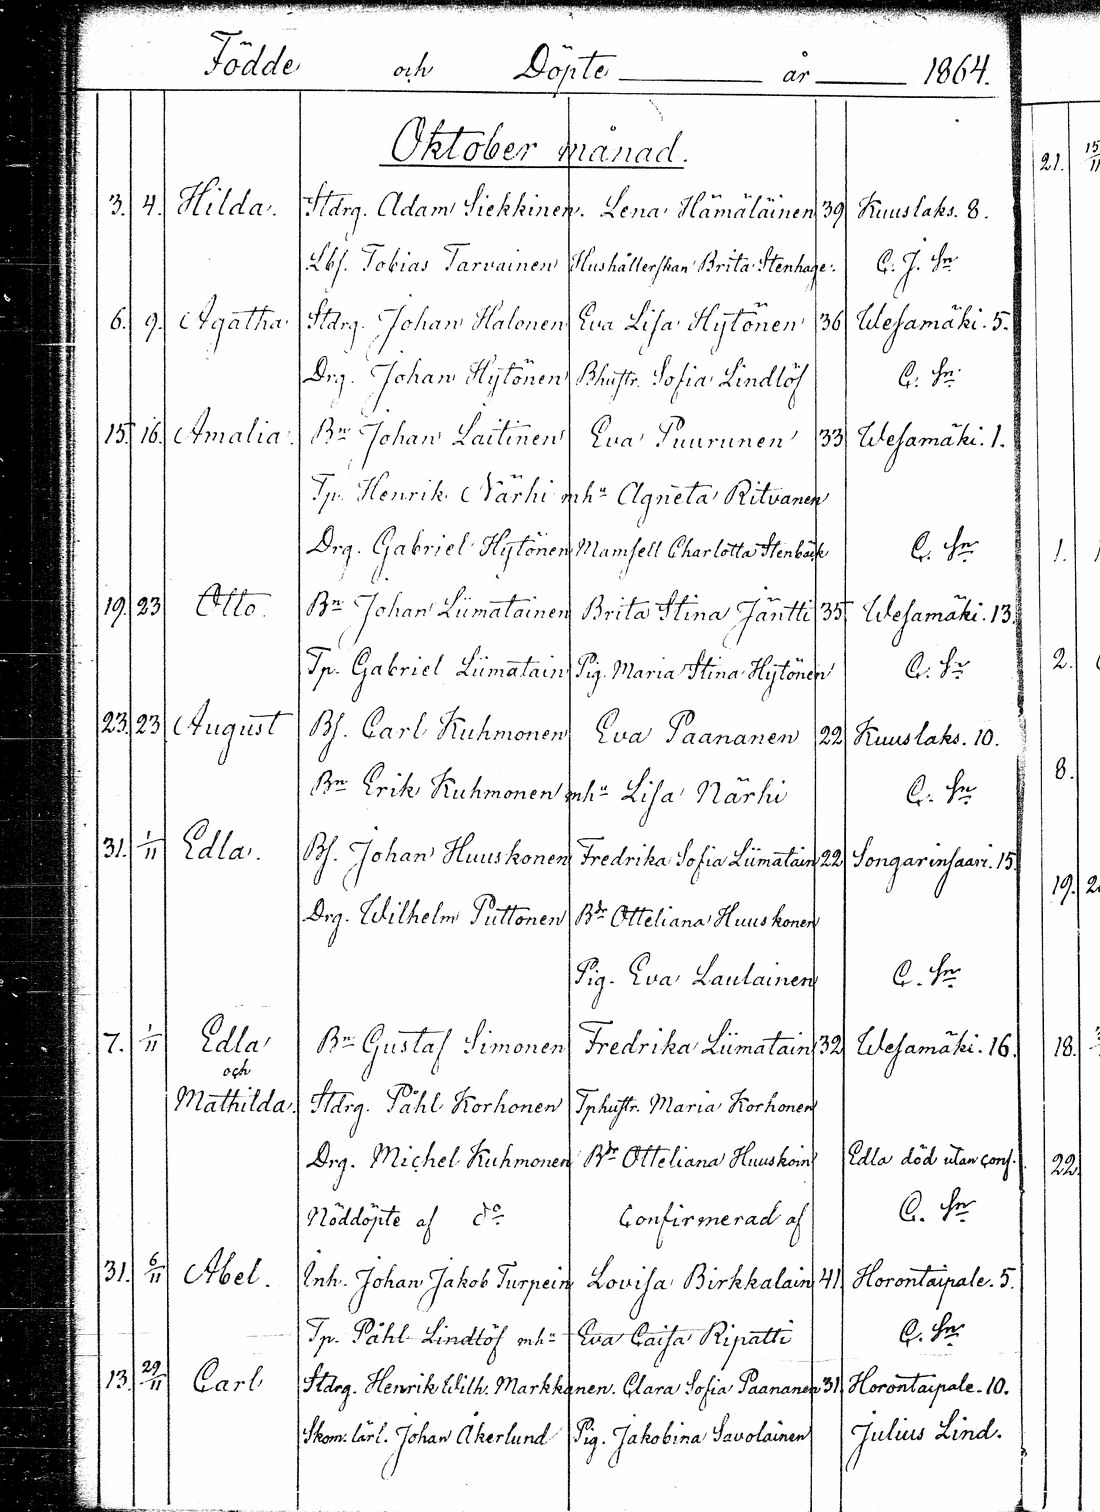 Födde och Döpte år 1864.
Oktober månad.
3. 4. Hilda. Stdrg. Adam Siekkinen. Lena Hämäläinen 39 Kuuslaks. 8.
Lbs. Tobias Tarvainen Hushållerskan Brita Stenhage. C. J. Sn
6. 9. Agatha Stdrg. Johan Halonen Eva Lisa Hytönen 36 Wesamäki. 5.
Drg. Johan Hytönen Bhustr. Sofia Lindlöf C. Sn
15 16. Amalia. Bn Johan Laitinen Eva Puurunen 33 Wesamäki. 1.
Tp. Henrik Närhi mhu Agneta Ritvanen
Drg. Gabriel Hytönen Mamsell Charlotta Stenbäck C. Sn
19. 23 Otto. Bn Johan Liimatainen Brita Stina Jäntti 35 Wesamäki. 13.
Tp. Gabriel Liimatain Pig. Maria Stina Hytönen C. Sn
23. 23 August Bs. Carl Kuhmonen Eva Paananen 22 Kuuslaks. 10.
Bn Erik Kuhmonen mhu Lisa Närhi C. Sn
31. 1/11 Edla. Bs. Johan Huuskonen Fredrika Sofia Liimatain 22 Songarinsaari. 15
Drg. Wilhelm Puttonen Bdr Otteliana Huuskonen
Pig. Eva Laulainen C. Sn
7. 1/11 Edla Bn Gustaf Simonen Fredrika Liimatain 32 Wesamäki. 16.
och
Mathilda. Stdrg. Påhl Korhonen Tphustr. Maria Korhonen
Drg. Michel Kuhmonen Bdr Otteliana Huuskoin Edla död utan conf.
Nöddöpte af do Confirmerad af C. Sn
31. 6/11 Abel. Inh. Johan Jakob Turpein Lovisa Birkkalain 41 Horontaipale. 5.
Tp. Påhl Lindlöf mhu Eva Caisa Ripatti C. Sn
13. 29/11 Carl Stdrg. Henrik Wilh. Markkanen. Clara Sofia Paananen 31. Horontaipale. 10.
Skom. lärl. Johan Åkerlund Pig. Jakobina Savolainen Julius Lind.
21. 15/11
1.
2.
8.
19.
18.
22